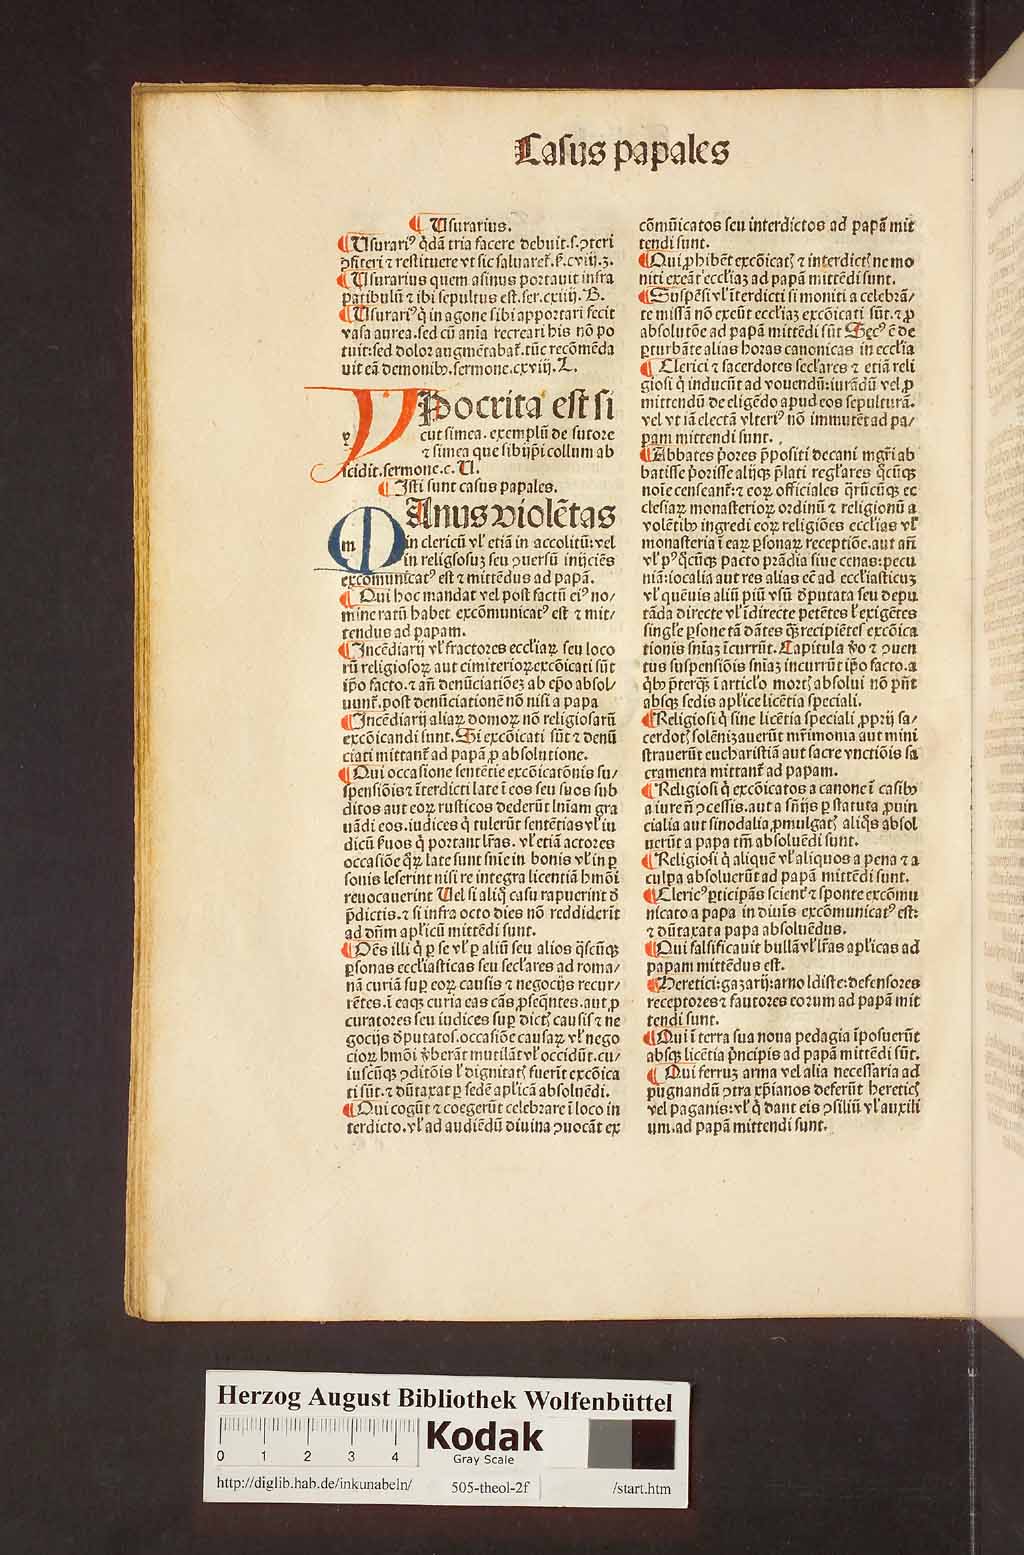 Casus papales
¶ Usurarius.
¶ Usurariꝰ q̃dã tria facere debuit.s.ꝯteri
ꝯfiteri ⁊ restituere vt sic saluaret̃.ẜ.cviij.3.
¶ Usurarius quem asinus portauit infra
patibulũ ⁊ ibi sepultus est.ser.cxiiij.B.
¶ Usurariꝰ q̇ in agone sibi apportari fecit
vasa aurea.sed cũ anĩa recreari his nõ po
tuit:sed dolor augmẽtabat̃.tũc recõmẽda
uit eã demonibꝰ.sermone.cxviij.L.
YPocrita est si
cut simea.exemplũ de sutore
⁊ simea que sibijp̃i collum ab
scidit.sermone.c.U.
¶ Isti sunt casus papales.
MAnus violẽtas
in clericũ vl̓ etiã in accolitũ:vel
in religiosuꝫ seu ꝯuersũ inijciẽs
excomunicatꝰ est ⁊ mittẽdus ad papã.
¶ Qui hoc mandat vel post factũ eiꝰ no/
mine ratũ habet excõmunicatꝰ est ⁊ mit/
tendus ad papam.
¶ Incẽdiarij vl̓ fractores eccl̓iaꝝ seu loco
rũ religiosoꝝ aut cimiterioꝝ excõicati sũt
ip̃o facto.⁊ añ denũciatiõeꝫ ab ep̃o absol/
uunt̃.post denũciationẽ nõ nisi a papa
¶ Incẽdiarij aliaꝝ domoꝝ nõ religiosarũ
excõicandi sunt.Si excõicati sũt ⁊ denũ
ciati mittant̃ ad papã ꝓ absolutione.
¶ Qui occasione sentẽtie excõicatõnis su/
spensiõis ⁊ ĩterdicti late ĩ eos seu suos sub
ditos aut eoꝝ rusticos dederũt lñiam gra
uãdi eos.iudices q̇ tulerũt sentẽtias vl̓ iu
dicũ ẜuos q̇ portant l̃ras.vl̓ etiã actores
occasiõe q̃ꝝ late sunt sñie in bonis vl̓ in ꝑ
sonis leserint nisi re integra licentiã hm̃oi
reuocauerint Uel si aliq̃ casu rapuerint ð
p̃dictis.⁊ si infra octo dies nõ reddiderit̃
ad dñm apl̓icũ mittẽdi sunt.
¶ Oẽs illi q̇ ꝑ se vl̓ ꝑ aliũ seu alios q̃scũqꝫ
ꝑsonas eccl̓iasticas seu secl̓ares ad roma/
nã curiã suꝑ eoꝝ causis ⁊ negocijs recur/
rẽtes.ĩ eaqꝫ curia eas cãs ꝓseq̃ntes.aut ꝓ
curatores seu iudices suꝑ dictꝭ causis ⁊ ne
gocijs ðputatos.occasiõe causaꝝ vl̓ nego
cioꝝ hm̃oi v̓berãt mutilãt vl̓ occidũt.cu/
iuscũqꝫ ꝯditõis l̓ dignitatꝭ fuerit̃ excõica
ti sũt.⁊ dũtaxat ꝑ sedẽ apl̓icã absoluẽdi.
¶ Qui cogũt ⁊ coegerũt celebrare ĩ loco in
terdicto.vl̓ ad audiẽdũ diuina ꝯuocãt ex
cõmũicatos seu interdictos ad papã mit
tendi sunt.
¶ Qui ꝓhibẽt excõicatꝭ ⁊ interdictꝭ ne mo
niti exeãt eccl̓iaꝫ ad papã mittẽdi sunt.
¶ Suspẽsi vl̓ ĩterdicti si moniti a celebrã/
te missã nõ exeũt eccl̓iaꝫ excõicati sũt.⁊ ꝓ
absolutõe ad papã mittẽdi sũt Secꝰ ẽ de
ꝑturbãte alias horas canonicas in eccl̓ia
¶ Clerici ⁊ sacerdotes secl̓ares ⁊ etiã reli
giosi q̇ inducũt ad vouendũ:iurãdũ vel ꝓ
mittendũ de eligẽdo apud eos sepulturã.
vel vt iã electã vlteriꝰ nõ immutẽt ad pa/
pam mittendi sunt.
¶ Abbates p̓ores p̃positi decani mgr̃i ab
batisse p̓orisse alijqꝫ p̃lati regl̓ares q̇cũqꝫ
noĩe censeant̃:⁊ eoꝝ officiales q̃rũcũqꝫ ec
clesiaꝝ monasterioꝝ ordinũ ⁊ religionũ a
volẽtibꝰ ingredi eoꝝ religiões eccl̓ias vl̓
monasteria ĩ eaꝝ ꝑsonaꝝ receptiõe.aut añ
vl̓ pꝰ q̇cũqꝫ pacto prãdia siue cenas:pecu
niã:iocalia aut res alias eẽ ad eccl̓iasticuꝫ
vl̓ quẽuis aliũ piũ vsũ ðputata seu depu
tãda directe vl̓ ĩdirecte petẽtes l̓ exigẽtes
singl̓e ꝑsone tã dãtes q̃ꝫ recipiẽtes excõica
tionis sñiaꝫ ĩcurrũt.Capitula v̓o ⁊ ꝯuen
tus suspensiõis sñiaꝫ incurrũt ip̃o facto.a
q̇bꝰ p̃terqꝫ ĩ articl̓o mortꝭ absolui nõ pñt
absqꝫ sedis apl̓ice licẽtia speciali.
¶ Religiosi q̇ sine licẽtia speciali ꝓprij sa/
cerdotꝭ solẽnizauerũt mr̃imonia aut mini
strauerũt eucharistiã aut sacre vnctiõis sa
cramenta mittant̃ ad papam.
¶ Religiosi q̇ excõicatos a canone ĩ casibꝰ
a iure ñ ꝯcessis.aut a sñijs ꝑ statuta ꝓuin
cialia aut sinodalia ꝓmulgatꝭ aliq̃s absol
uerũt a papa tm̃ absoluẽdi sunt.
¶ Religiosi q̇ aliquẽ vl̓ aliquos a pena ⁊ a
culpa absoluerũt ad papã mittẽdi sunt.
¶ Clericꝰ ꝑticipãs scient̃ ⁊ sponte excõmu
nicato a papa in diuĩs excõmunicatꝰ est:
⁊ dũtaxat a papa absoluẽdus.
¶ Qui falsificauit bullã vl̓ l̃ras apl̓icas ad
papam mittẽdus est.
¶ Heretici:gazarij:arnoldiste:defensores
receptores ⁊ fautores eorum ad papã mit
tendi sunt.
¶ Qui ĩ terra sua noua pedagia ĩposuerũt
absqꝫ licẽtia p̓ncipis ad papã mittẽdi sũt.
¶ Qui ferruꝫ arma vel alia necessaria ad
pugnandũ ꝯtra xp̃ianos deferũt hereticꝭ
vel paganis:vl̓ q̇ dant eis ꝯsiliũ vl̓ auxili
um.ad papã mittendi sunt.
Herzog August Bibliothek Wolfenbüttel
0 1 2 3 4
Kodak
Gray Scale
http://diglib.hab.de/inkunabeln/ 505-theol-2f /start.htm